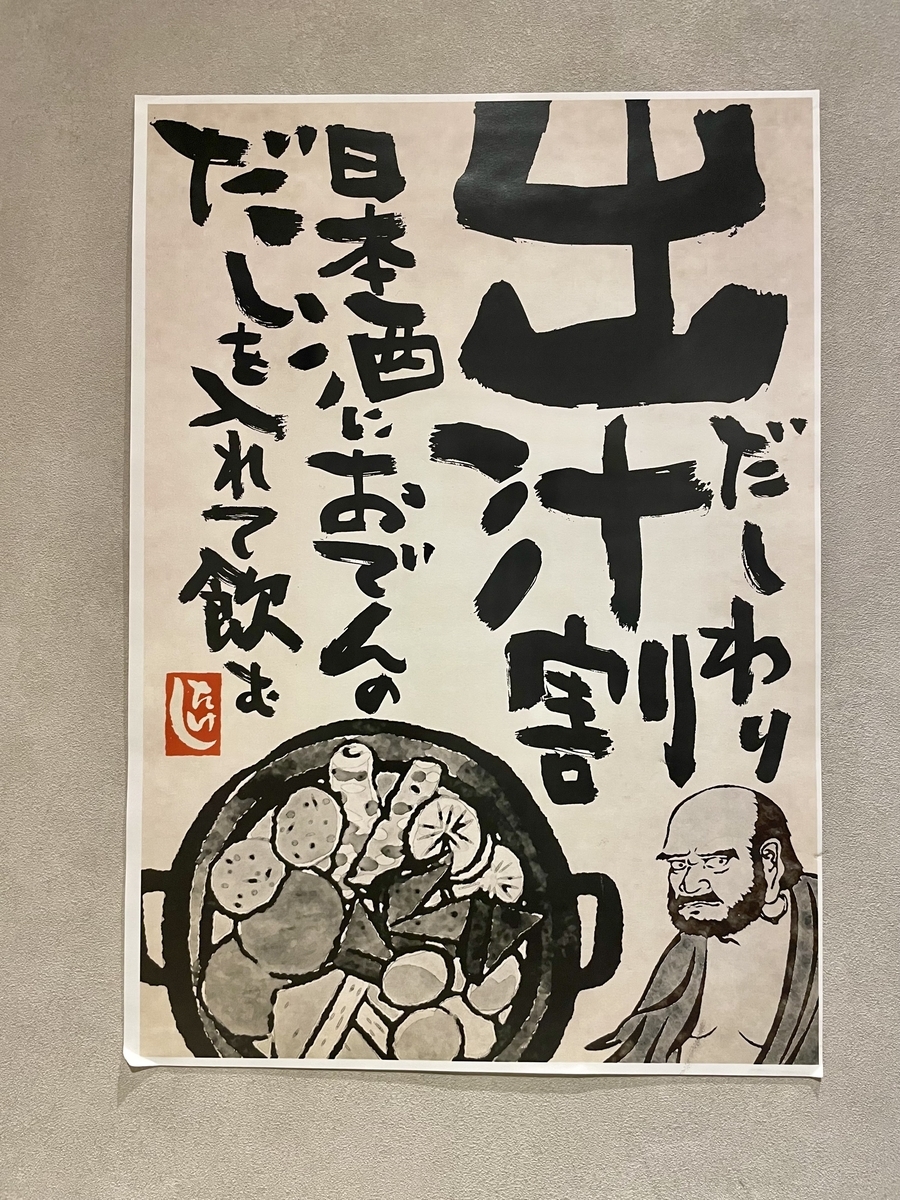 出汁割
だしわり
日本酒におでんの
だしを入れて飲む
たいし